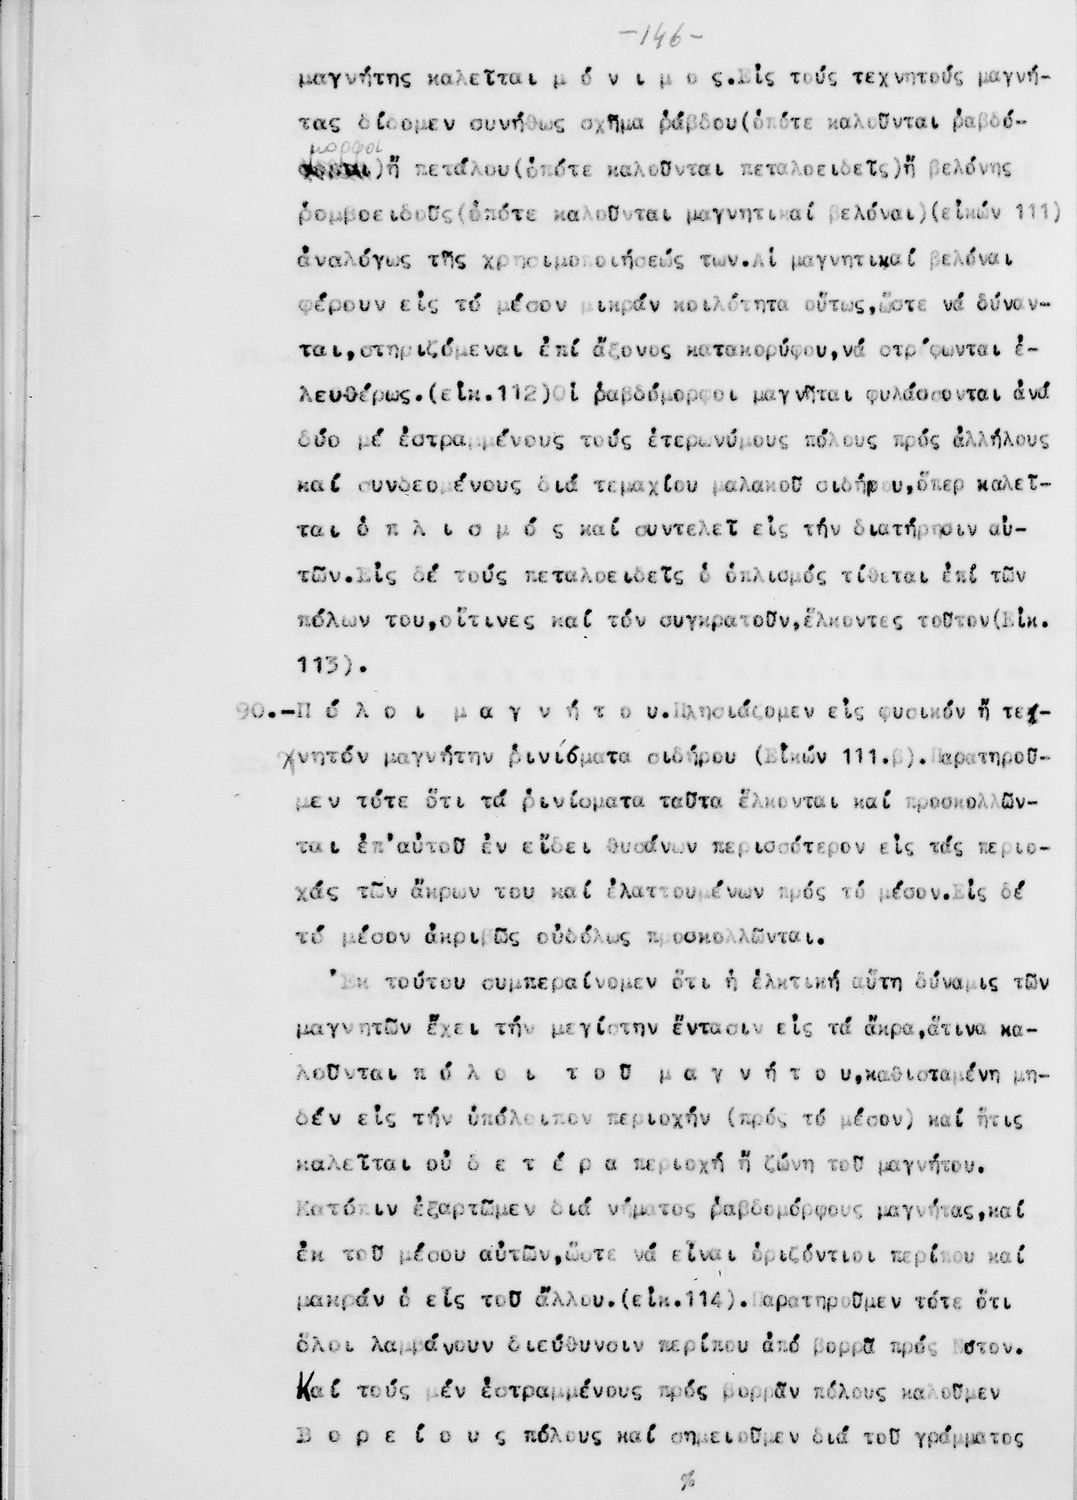 -146-
μαγνήτης καλεῖται μ ό ν ι μ ο ς.Εἰς τούς τεχνητούς μαγνή-
τας δίδομεν συνήθως σχῆμα ῥάβδου(ὁπότε καλοῦνται ῥαβδό-
μορφοι
)ἤ πετάλου(ὁπότε καλοῦνται πεταλοειδεῖς)ἤ βελόνης
ῥομβοειδοῦς(ὁπότε καλοῦνται μαγνητικαί βελόναι)(εἰκών 111)
ἀναλόγως τῆς χρησιμοποιήσεώς των.Αἱ μαγνητικαί βελόναι
φέρουν εἰς τό μέσον μικράν κοιλότητα οὕτως,ὥστε νά δύναν-
ται,στηριζόμεναι ἐπί ἄξονος κατακορύφου,νά στρέφωνται ἐ-
λευθέρως.(εἰκ.112)Οἱ ῥαβδόμορφοι μαγνῆται φυλάσσονται ἀνά
δύο μέ ἐστραμμένους τούς ἑτερωνύμους πόλους πρός ἀλλήλους
καί συνδεομένους διά τεμαχίου μαλακοῦ σιδήρου,ὅπερ καλεῖ-
ται ὁ π λ ι σ μ ό ς καί συντελεῖ εἰς τήν διατήρησιν αὐ-
τῶν.Εἰς δέ τούς πεταλοειδεῖς ὁ ὁπλισμός τίθεται ἐπί τῶν
πόλων του,οἵτινες καί τόν συγκρατοῦν,ἕλκοντες τοῦτον(Εἰκ.
113).
90.-Π ό λ ο ι μ α γ ν ή τ ο υ.Πλησιάζομεν εἰς φυσικόν ἤ τε-
χνητόν μαγνήτην ῥινίσματα σιδήρου (Εἰκών 111.β).Παρατηροῦ-
μεν τότε ὅτι τά ῥινίσματα ταῦτα ἕλκονται καί προσκολλῶν-
ται ἐπ'αὐτοῦ ἐν εἴδει θυσάνων περισσότερον εἰς τάς περιο-
χάς τῶν ἄκρων του καί ἐλαττουμένων πρός τό μέσον.Εἰς δέ
τό μέσον ἀκριβῶς οὐδόλως προσκολλῶνται.
Ἐκ τούτου συμπεραίνομεν ὅτι ἡ ἑλκτική αὕτη δύναμις τῶν
μαγνητῶν ἔχει τήν μεγίστην ἔντασιν εἰς τά ἄκρα,ἅτινα κα-
λοῦνται π ό λ ο ι τ ο ῦ μ α γ ν ή τ ο υ,καθισταμένη μη-
δέν εἰς τήν ὑπόλοιπον περιοχήν (πρός τό μέσον) καί ἥτις
καλεῖται οὐ δ ε τ έ ρ α περιοχή ἤ ζώνη τοῦ μαγνήτου.
Κατόπιν ἐξαρτῶμεν διά νήματος ῥαβδομόρφους μαγνήτας,καί
ἐκ τοῦ μέσου αὐτῶν,ὥστε νά εἶναι ὁριζόντιοι περίπου καί
μακράν ὁ εἷς τοῦ ἄλλου.(εἰκ.114).Παρατηροῦμεν τότε ὅτι
ὅλοι λαμβάνουν διεύθυνσιν περίπου ἀπό βορρᾶ πρός Νότον.
Καί τούς μέν ἐστραμμένους πρός βορρᾶν πόλους καλοῦμεν
Β ο ρ ε ί ο υ ς πόλους καί σημειοῦμεν διά τοῦ γράμματος
%